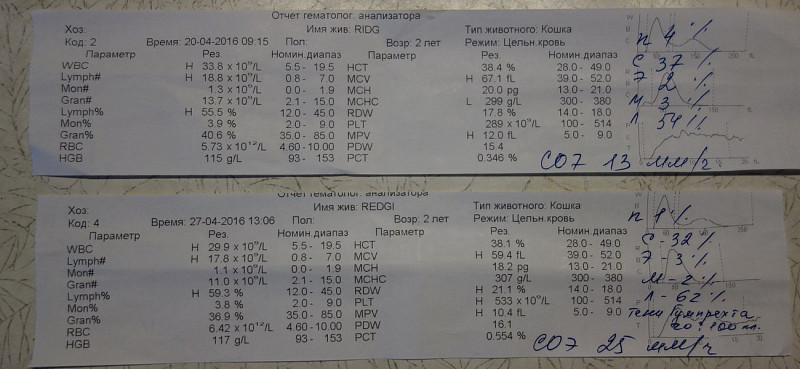 Отчет гематолог. анализатора
Хоз: Имя жив: RIDG Тип животного: Кошка
Код: 2 Время: 20-04-2016 09:15 Пол: Возр: 2 лет Режим: Цельн.кровь
Параметр Рез. Номин.диапаз Параметр Рез. Номин.диапаз
WBC H 33.8 x 10⁹/L 5.5 - 19.5 HCT 38.4 % 28.0 - 49.0
Lymph# H 18.8 x 10⁹/L 0.8 - 7.0 MCV H 67.1 fL 39.0 - 52.0
Mon# 1.3 x 10⁹/L 0.0 - 1.9 MCH 20.0 pg 13.0 - 21.0
Gran# 13.7 x 10⁹/L 2.1 - 15.0 MCHC L 299 g/L 300 - 380
Lymph% H 55.5 % 12.0 - 45.0 RDW 17.8 % 14.0 - 18.0
Mon% 3.9 % 2.0 - 9.0 PLT 289 x 10⁹/L 100 - 514
Gran% 40.6 % 35.0 - 85.0 MPV H 12.0 fL 5.0 - 9.0
RBC 5.73 x 10¹²/L 4.60 - 10.00 PDW 15.4
HGB 115 g/L 93 - 153 PCT 0.346 %
П 4 %
С 37 %
Э 2 %
М 3 %
Л 54 %
СОЭ 13 мм/г
Отчет гематолог. анализатора
Хоз: Имя жив: REDGI Тип животного: Кошка
Код: 4 Время: 27-04-2016 13:06 Пол: Возр: 2 лет Режим: Цельн.кровь
Параметр Рез. Номин.диапаз Параметр Рез. Номин.диапаз
WBC H 29.9 x 10⁹/L 5.5 - 19.5 HCT 38.1 % 28.0 - 49.0
Lymph# H 17.8 x 10⁹/L 0.8 - 7.0 MCV H 59.4 fL 39.0 - 52.0
Mon# 1.1 x 10⁹/L 0.0 - 1.9 MCH 18.2 pg 13.0 - 21.0
Gran# 11.0 x 10⁹/L 2.1 - 15.0 MCHC 307 g/L 300 - 380
Lymph% H 59.3 % 12.0 - 45.0 RDW H 21.1 % 14.0 - 18.0
Mon% 3.8 % 2.0 - 9.0 PLT H 533 x 10⁹/L 100 - 514
Gran% 36.9 % 35.0 - 85.0 MPV H 10.4 fL 5.0 - 9.0
RBC 6.42 x 10¹²/L 4.60 - 10.00 PDW 16.1
HGB 117 g/L 93 - 153 PCT 0.554 %
П 1 %
С - 32 %
Э - 3 %
М - 2 %
Л - 62 %
тени Гумпрехта
СОЭ 25 мм/г